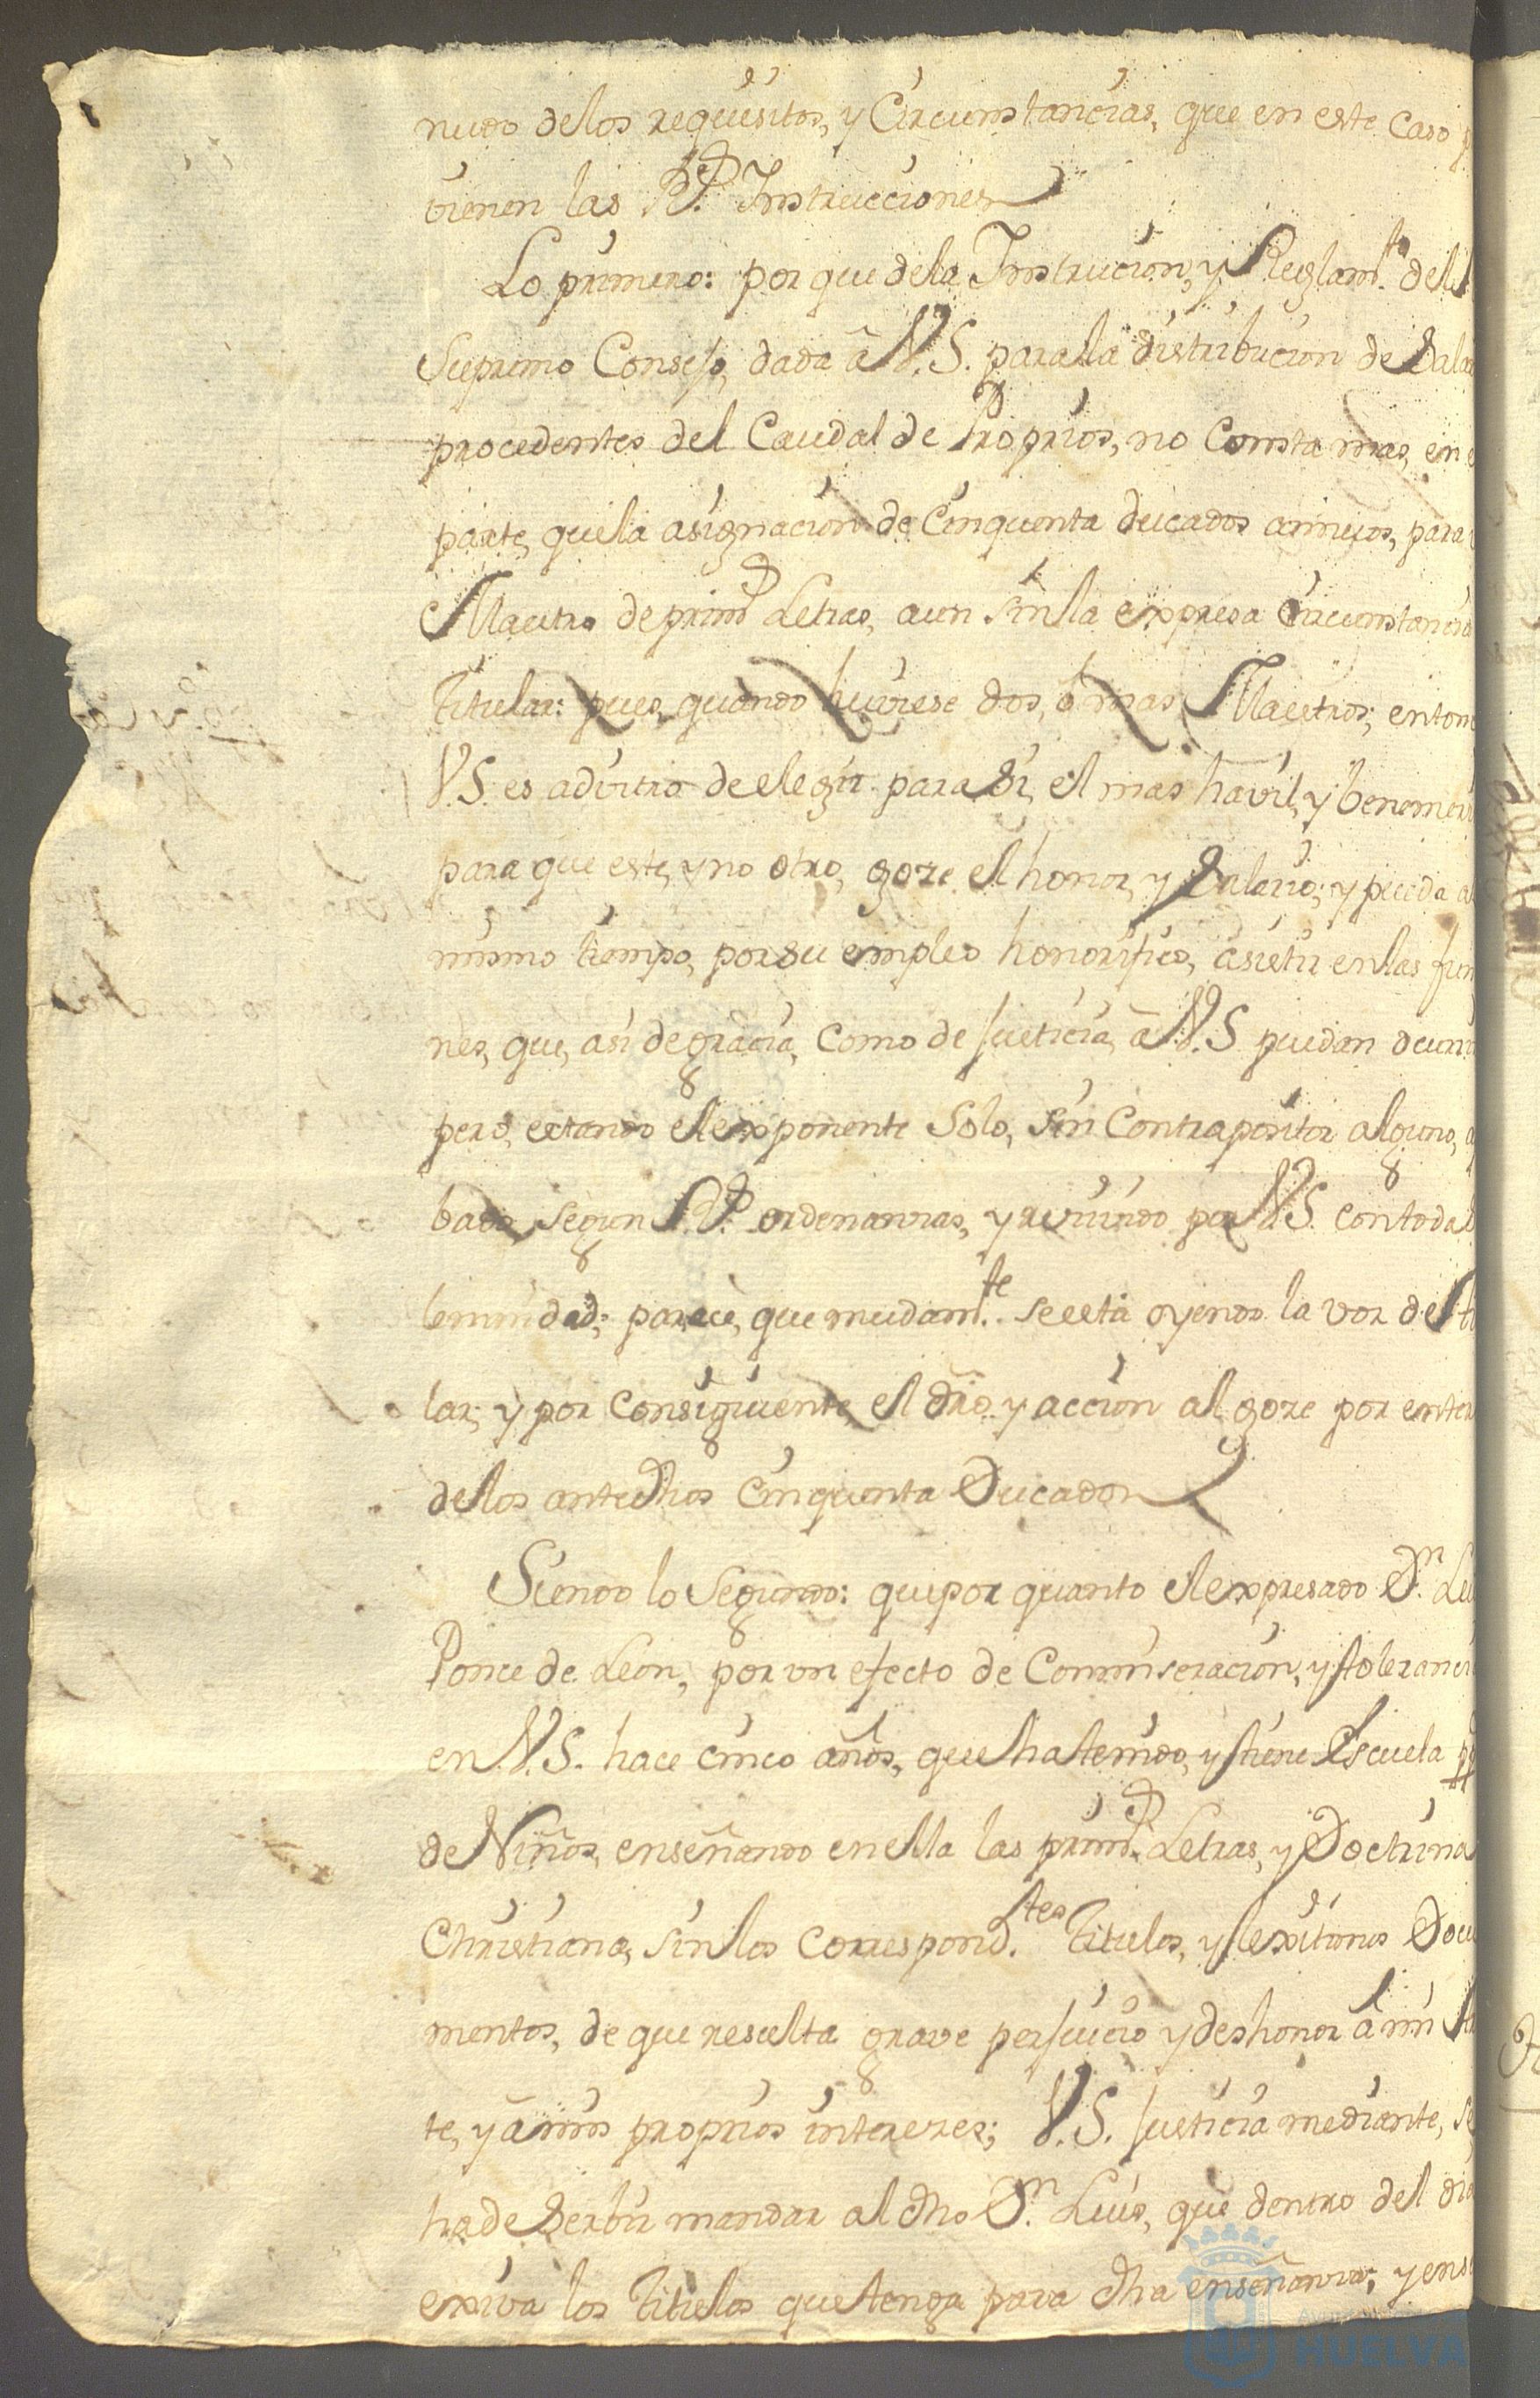 nudo delos requisitos, y Circunstancias, que en este caso p
vienen las R.s Instrucciones
Lo primero: por que dela Instrucion, y Reglam.to del
Supremo Consejo, dada â V.S. para la distribucion de Sala
procedentes del Caudal de Proprios, no consta mas, en e
parte, que la asignacion de Cinquenta ducados annuos, para
Maestro de prim.s Letras, aun sin la expresa circunstancia
Titular: pues, quando huviese dos, ó mas Maestros; enton
V.S. es advitro de elegir para Si, el mas havil, y benemeri
para que este, y no otro, goze el honor, y Salario; y pueda al
mismo tiempo, por su empleo honorifico, asistir en las fun
nes, que, asi de gracia, como de Justicia, â V.S. puedan
pero, estando el exponente Solo, sin Contrapositor alguno, a
bado Segun R.s ordenanzas, y recivido por V.S. con toda
lemnidad; parece, que mudam.te se està oyendo la voz de ti
lar; y por consiguiente, el dro. y accion al goze por enter
de los antedhos Cinquenta Ducados
Siendo lo Segundo: que por quanto el expresado D.n Lui
Ponce de Leon, por un efecto de Conmiseracion, y tolerancia
en V.S. hace cinco años, que ha tenido, y tiene Escuela pp
de Niños, enseñando en ella las prim.s Letras, y Doctrina
Christiana, sin los correspond.tes Titulos, y lexitimos Docu
mentos, de que resulta grave perjuicio y deshonor â mi
te, y â mis proprios interezes; V.S. Justicia mediante, se
ha de Serbir mandar al dho D.n Luis, que dentro del dia
exiva los Titulos que tenga para dha enseñanza; y en
HUELVA